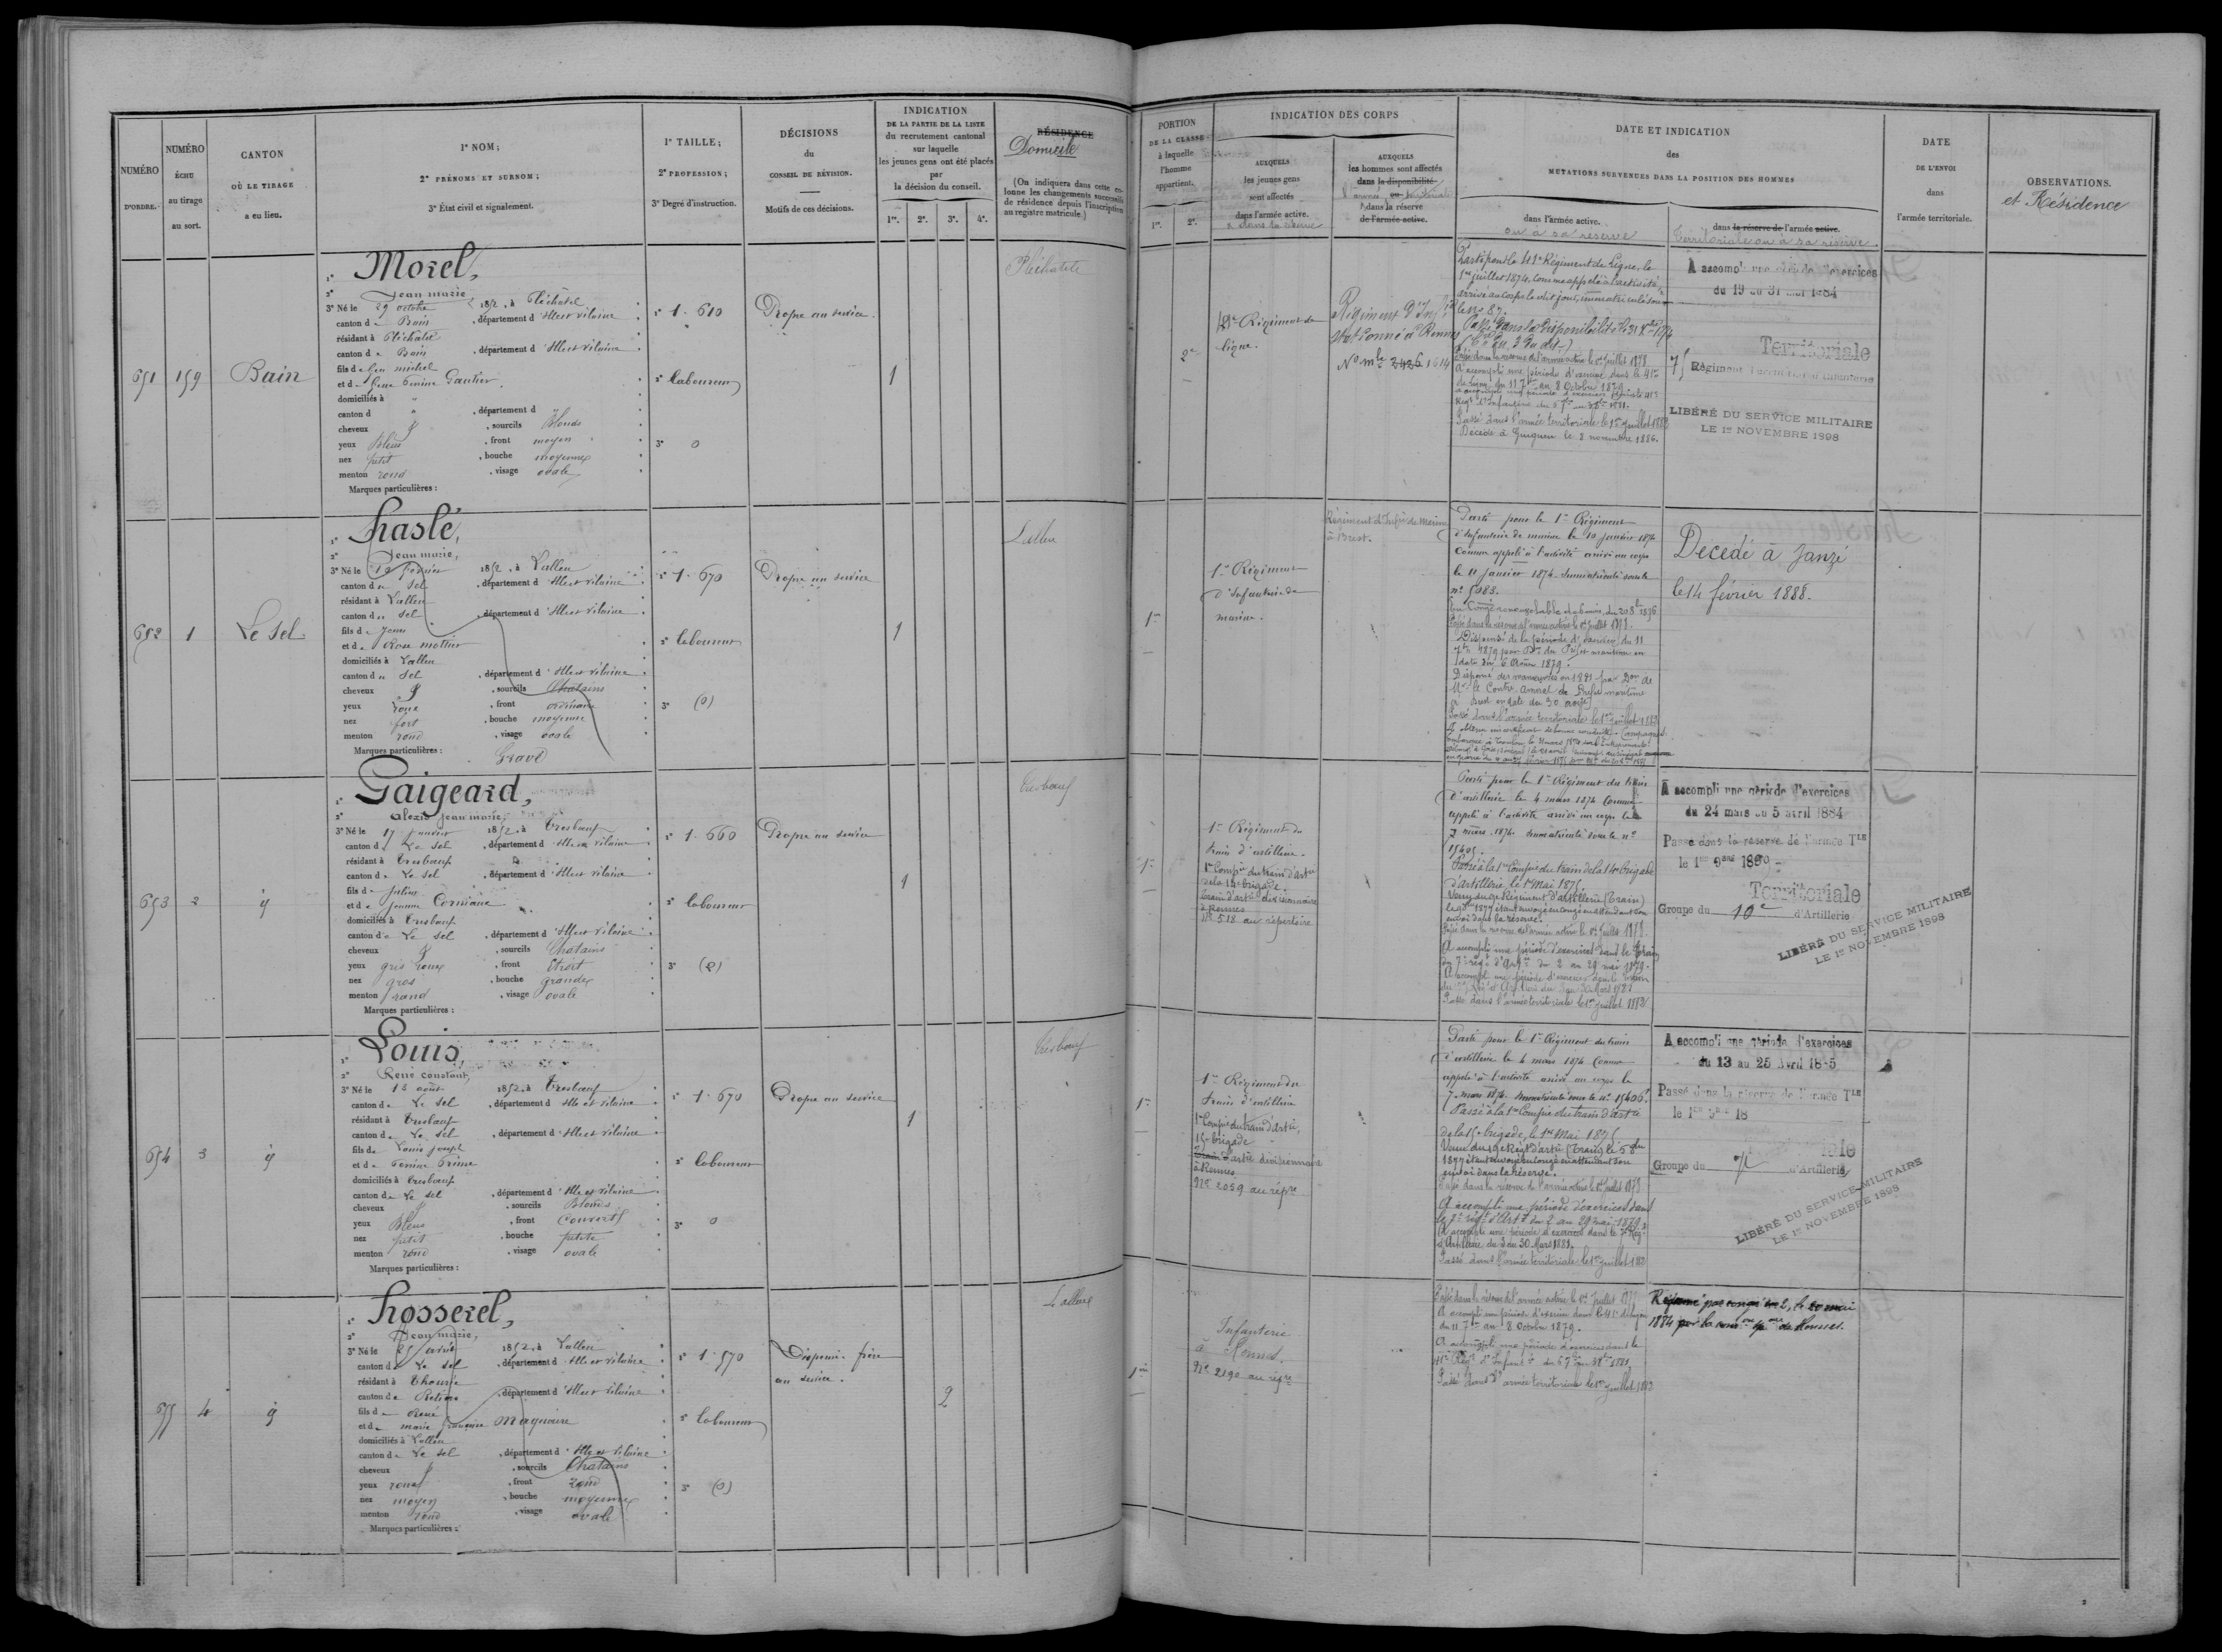 NUMÉRO
D'ORDRE.
NUMÉRO
ÉCHU
au tirage
au sort.
CANTON
OÙ LE TIRAGE
a eu lieu.
1° NOM;
2° PRÉNOMS ET SURNOM;
3° État civil et signalement.
1° TAILLE;
2° PROFESSION;
3° Degré d'instruction.
DÉCISIONS
du
CONSEIL DE RÉVISION.
Motifs de ces décisions.
INDICATION
DE LA PARTIE DE LA LISTE
du recrutement cantonal
sur laquelle
les jeunes gens ont été placés
par
la décision du conseil.
1re. 2e. 3e. 4e.
RÉSIDENCE
Domicile
(On indiquera dans cette colonne les changements successifs
de résidence depuis l'inscription
au registre matricule.)
651
159
Bain
1° Morel,
2° Jean marie
3° Né le 29 octobre 1852, à Pléchatel
canton de Bain, département d'Ille et vilaine
résidant à Pléchatel
canton de Bain, département d'Ille et vilaine
fils de feu michel
et de feue Perrine Gautier
domiciliés à "
canton d " , département d
cheveux , sourcils Blonds
yeux Bleus , front moyen
nez petit , bouche moyenne
menton rond , visage ovale
Marques particulières :
1° 1. 610
2° Laboureur
3° 0
Propre au service.
1
Pléchatel
652
1
Le Sel
1° haslé,
2° Jean marie,
3° Né le février 1852, à Lalleu
canton du Sel, département d'Ille et vilaine
résidant à Lalleu
canton du Sel, département d'Ille et vilaine
fils de Jean
et de Rose mottier
domiciliés à Lalleu
canton du Sel, département d'Ille et vilaine
cheveux , sourcils Chatains
yeux roux , front ordinaire
nez fort , bouche moyenne
menton rond , visage ovale
Marques particulières :
Gravé
1° 1. 670
2° Laboureur
3° (0)
Propre au service
1
Lalleu
653
2
1° Gaigeard,
2° Alexis Jean marie,
3° Né le 17 janvier 1852, à Tresbœuf
canton d Le Sel, département d'Ille et vilaine
résidant à Tresbœuf
canton de Le Sel, département d'Ille et vilaine
fils de Julien
et de Jeanne
domiciliés à Tresbœuf
canton de Le Sel, département d'Ille et vilaine
cheveux , sourcils Chatains
yeux gris roux , front Etroit
nez gros , bouche grande
menton rond , visage ovale
Marques particulières :
1° 1. 660
2° Laboureur
3° (2)
Propre au service
1
Tresbœuf
654
3
1° Louis,
2° René constant,
3° Né le 18 août 1852, à Tresbœuf
canton de Le Sel, département d'Ille et vilaine
résidant à Tresbœuf
canton de Le Sel, département d'Ille et vilaine
fils de Louis joseph
et de Perrine
domiciliés à Tresbœuf
canton de Le Sel, département d'Ille et vilaine
cheveux , sourcils Blonds
yeux Bleus , front Couvert
nez petit , bouche petite
menton rond , visage ovale
Marques particulières :
1° 1. 670
2° Laboureur
3° 0
Propre au service
1
Tresbœuf
655
4
1° hosserel,
2° Jean marie,
3° Né le 1852, à Lalleu
canton de Le Sel, département d'Ille et vilaine
résidant à Thourie
canton de Retiers, département d'Ille et vilaine
fils de René
et de marie françoise
domiciliés à Lalleu
canton de Le Sel, département d'Ille et vilaine
cheveux , sourcils Chatains
yeux roux , front rond
nez moyen , bouche moyenne
menton rond , visage ovale
Marques particulières :
1° 1. 570
2° Laboureur
3° (0)
Dispensé. frère
au service.
2
Lalleu
PORTION
DE LA CLASSE
à laquelle
l'homme
appartient.
1re. 2e.
INDICATION DES CORPS
AUXQUELS
les jeunes gens
sont affectés
dans l'armée active.
AUXQUELS
les hommes sont affectés
dans la disponibilité
ou
dans la réserve
de l'armée active.
DATE ET INDICATION
des
MUTATIONS SURVENUES DANS LA POSITION DES HOMMES
dans l'armée active.
ou à sa réserve
dans la réserve de l'armée active.
Territoriale ou à sa réserve.
DATE
DE L'ENVOI
dans
l'armée territoriale.
OBSERVATIONS.
et Résidence
2e
41e Régiment de
ligne.
Régiment d'Inf.ie
stationné à Rennes
No mle 2426 1614
Parti pour le 41e Régiment de Ligne, le
1er juillet 1874, comme appelé à l'activité,
arrivé au corps le dit jour, immatriculé sous
le no 87.
Passé dans la disponibilité le 31 Xbre 1874
Passé dans la réserve de l'armée active le 1er Juillet 1878
A accompli une période d'exercices dans le 41e
de Ligne du 11 7bre au 8 Octobre 1879
Passé dans l'armée territoriale le 1er juillet 1882
Décédé à Guignen le 2 novembre 1886.
A accompli une période d'exercices
du 19 au 31 mai 1884
Territoriale
75 Régiment Territorial Infanterie
LIBÉRÉ DU SERVICE MILITAIRE
LE 1er NOVEMBRE 1898
1re
1er Régiment
d'Infanterie de
marine.
Régiment d'Infie de Marine
à Brest.
Parti pour le 1er Régiment
d'Infanterie de marine le 10 janvier 1874
comme appelé à l'activité arrivé au corps
le 11 janvier 1874. Immatriculé sous le
no 5983.
Passé dans la réserve de l'armée active le 1er juillet 1878.
Dispensé de la période d'exercices du 11
7bre 1879 par Don du Préfet maritime en
date du 6 Août 1879.
Dispensé des manœuvres en 1881 par Don de
Mr le Contre Amiral
à Brest en date du 30 août
Passé dans l'armée territoriale le 1er juillet 1883
Décédé à Janzé
le 14 février 1888.
1re
1er Régiment du
train d'artillerie.
1re Compie du train d'artie
de la 14e brigade.
Train d'artie divisionnaire
à Rennes
No 518 au répertoire
Parti pour le 1er Régiment du train
d'artillerie le 4 mars 1874 comme
appelé à l'activité arrivé au corps le
7 mars 1874. Immatriculé sous le no
15405.
Passé à la 1re Compie du train de la 14e brigade
d'artillerie, le 1er mai 1875.
étant envoyé en congé en attendant son
envoi dans la réserve.
Passé dans la réserve de l'armée active le 1er Juillet 1878.
A accompli une période d'exercices dans le train
du 7e régt d'Artie du 2 au 29 mai 1879.
Passé dans l'armée territoriale le 1er juillet 1883
A accompli une période d'exercices
du 24 mars au 5 avril 1884
Passé dans la réserve de l'armée Tle
le 1er 9bre 1889
Territoriale
Groupe du 10e d'Artillerie
LIBÉRÉ DU SERVICE MILITAIRE
LE 1er NOVEMBRE 1898
1re
1er Régiment du
train d'artillerie
1re Compie du train d'artie,
15e brigade
Train d'artie divisionnaire
à Rennes
No 2059 au répre
Parti pour le 1er Régiment du train
d'artillerie le 4 mars 1874 comme
appelé à l'activité arrivé au corps le
7 mars 1874. Immatriculé sous le no 15406.
Passé à la 1re Compie du train d'artie
de la 15e brigade, le 1er Mai 1875
1877 étant envoyé en congé en attendant son
envoi dans la réserve.
Passé dans la réserve de l'armée active le 1er juillet 1878
A accompli une période d'exercices dans
le 7e régt d'Artie du 2 au 29 mai 1879.
A accompli une période d'exercices dans le 7e Régt
d'Artillerie du 3 au 30 Mars 1882.
Passé dans l'armée territoriale le 1er juillet 1883
A accompli une période d'exercices
du 13 au 25 Avril 1885
Passé dans la réserve de l'armée Tle
le 1er 9bre 18
Groupe du 7e d'Artillerie
LIBÉRÉ DU SERVICE MILITAIRE
LE 1er NOVEMBRE 1898
1re
Infanterie
à Rennes.
No 2190 au répre
Passé dans la réserve de l'armée active le 1er Juillet 1878
A accompli une période d'exercices dans le 41e de ligne
du 11 7bre au 8 Octobre 1879.
A accompli une période d'exercices dans le
41e Régt d'Infantie
Passé dans l'armée territoriale le 1er juillet 1883
Réformé par congé no 2, le 20 mai
1884 par la com.on sp.ale de Rennes.